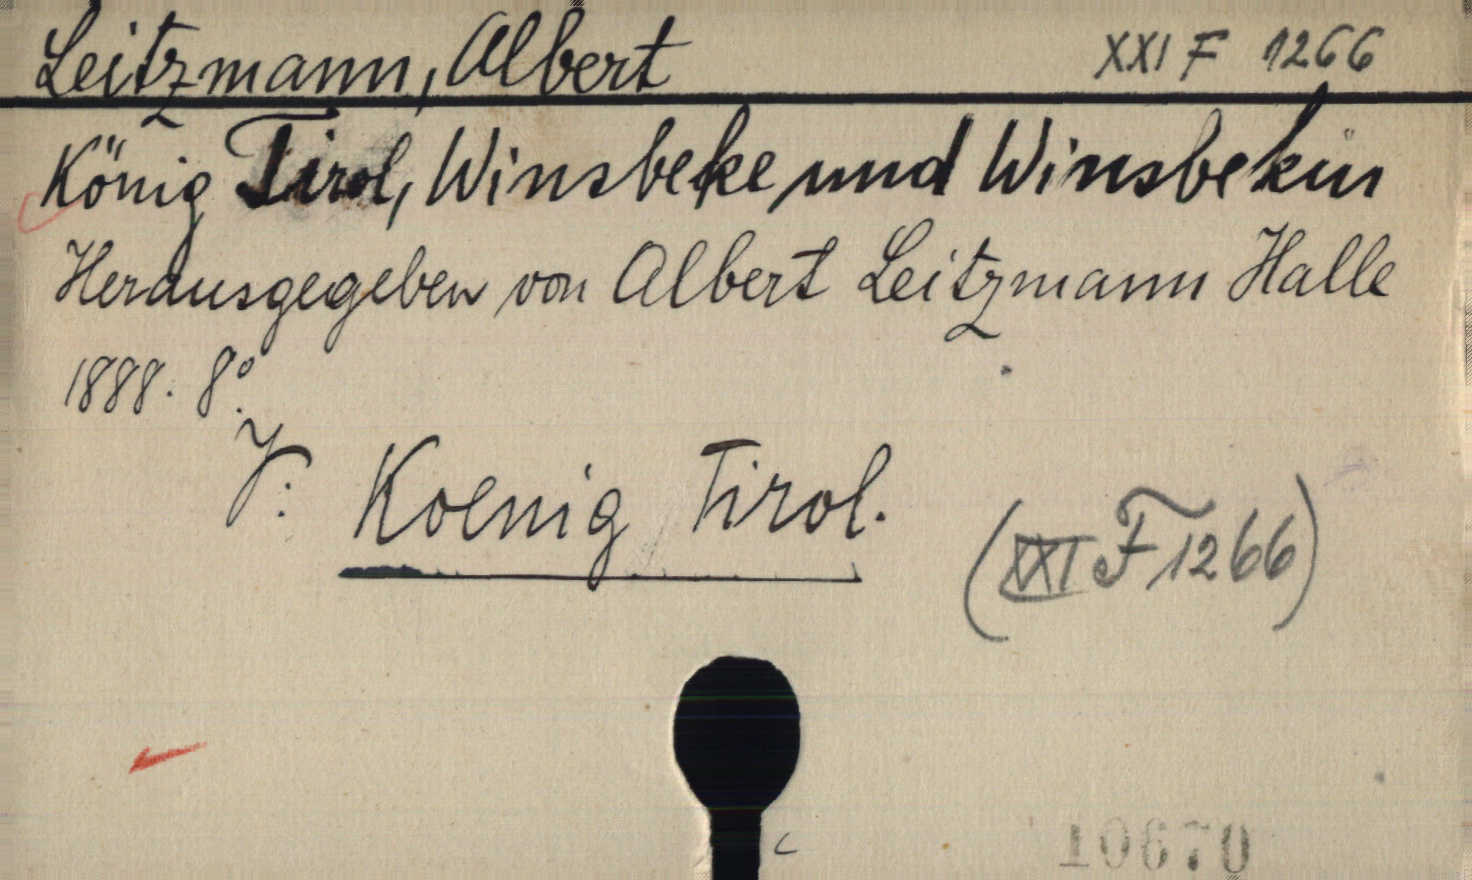 Leitzmann, Albert XXI F 1266
König Tirol, Winsbeke und Winsbekin
Herausgegeben von Albert Leitzmann Halle
1888. 8°.
V: Koenig Tirol.
(XXI F 1266)
10670